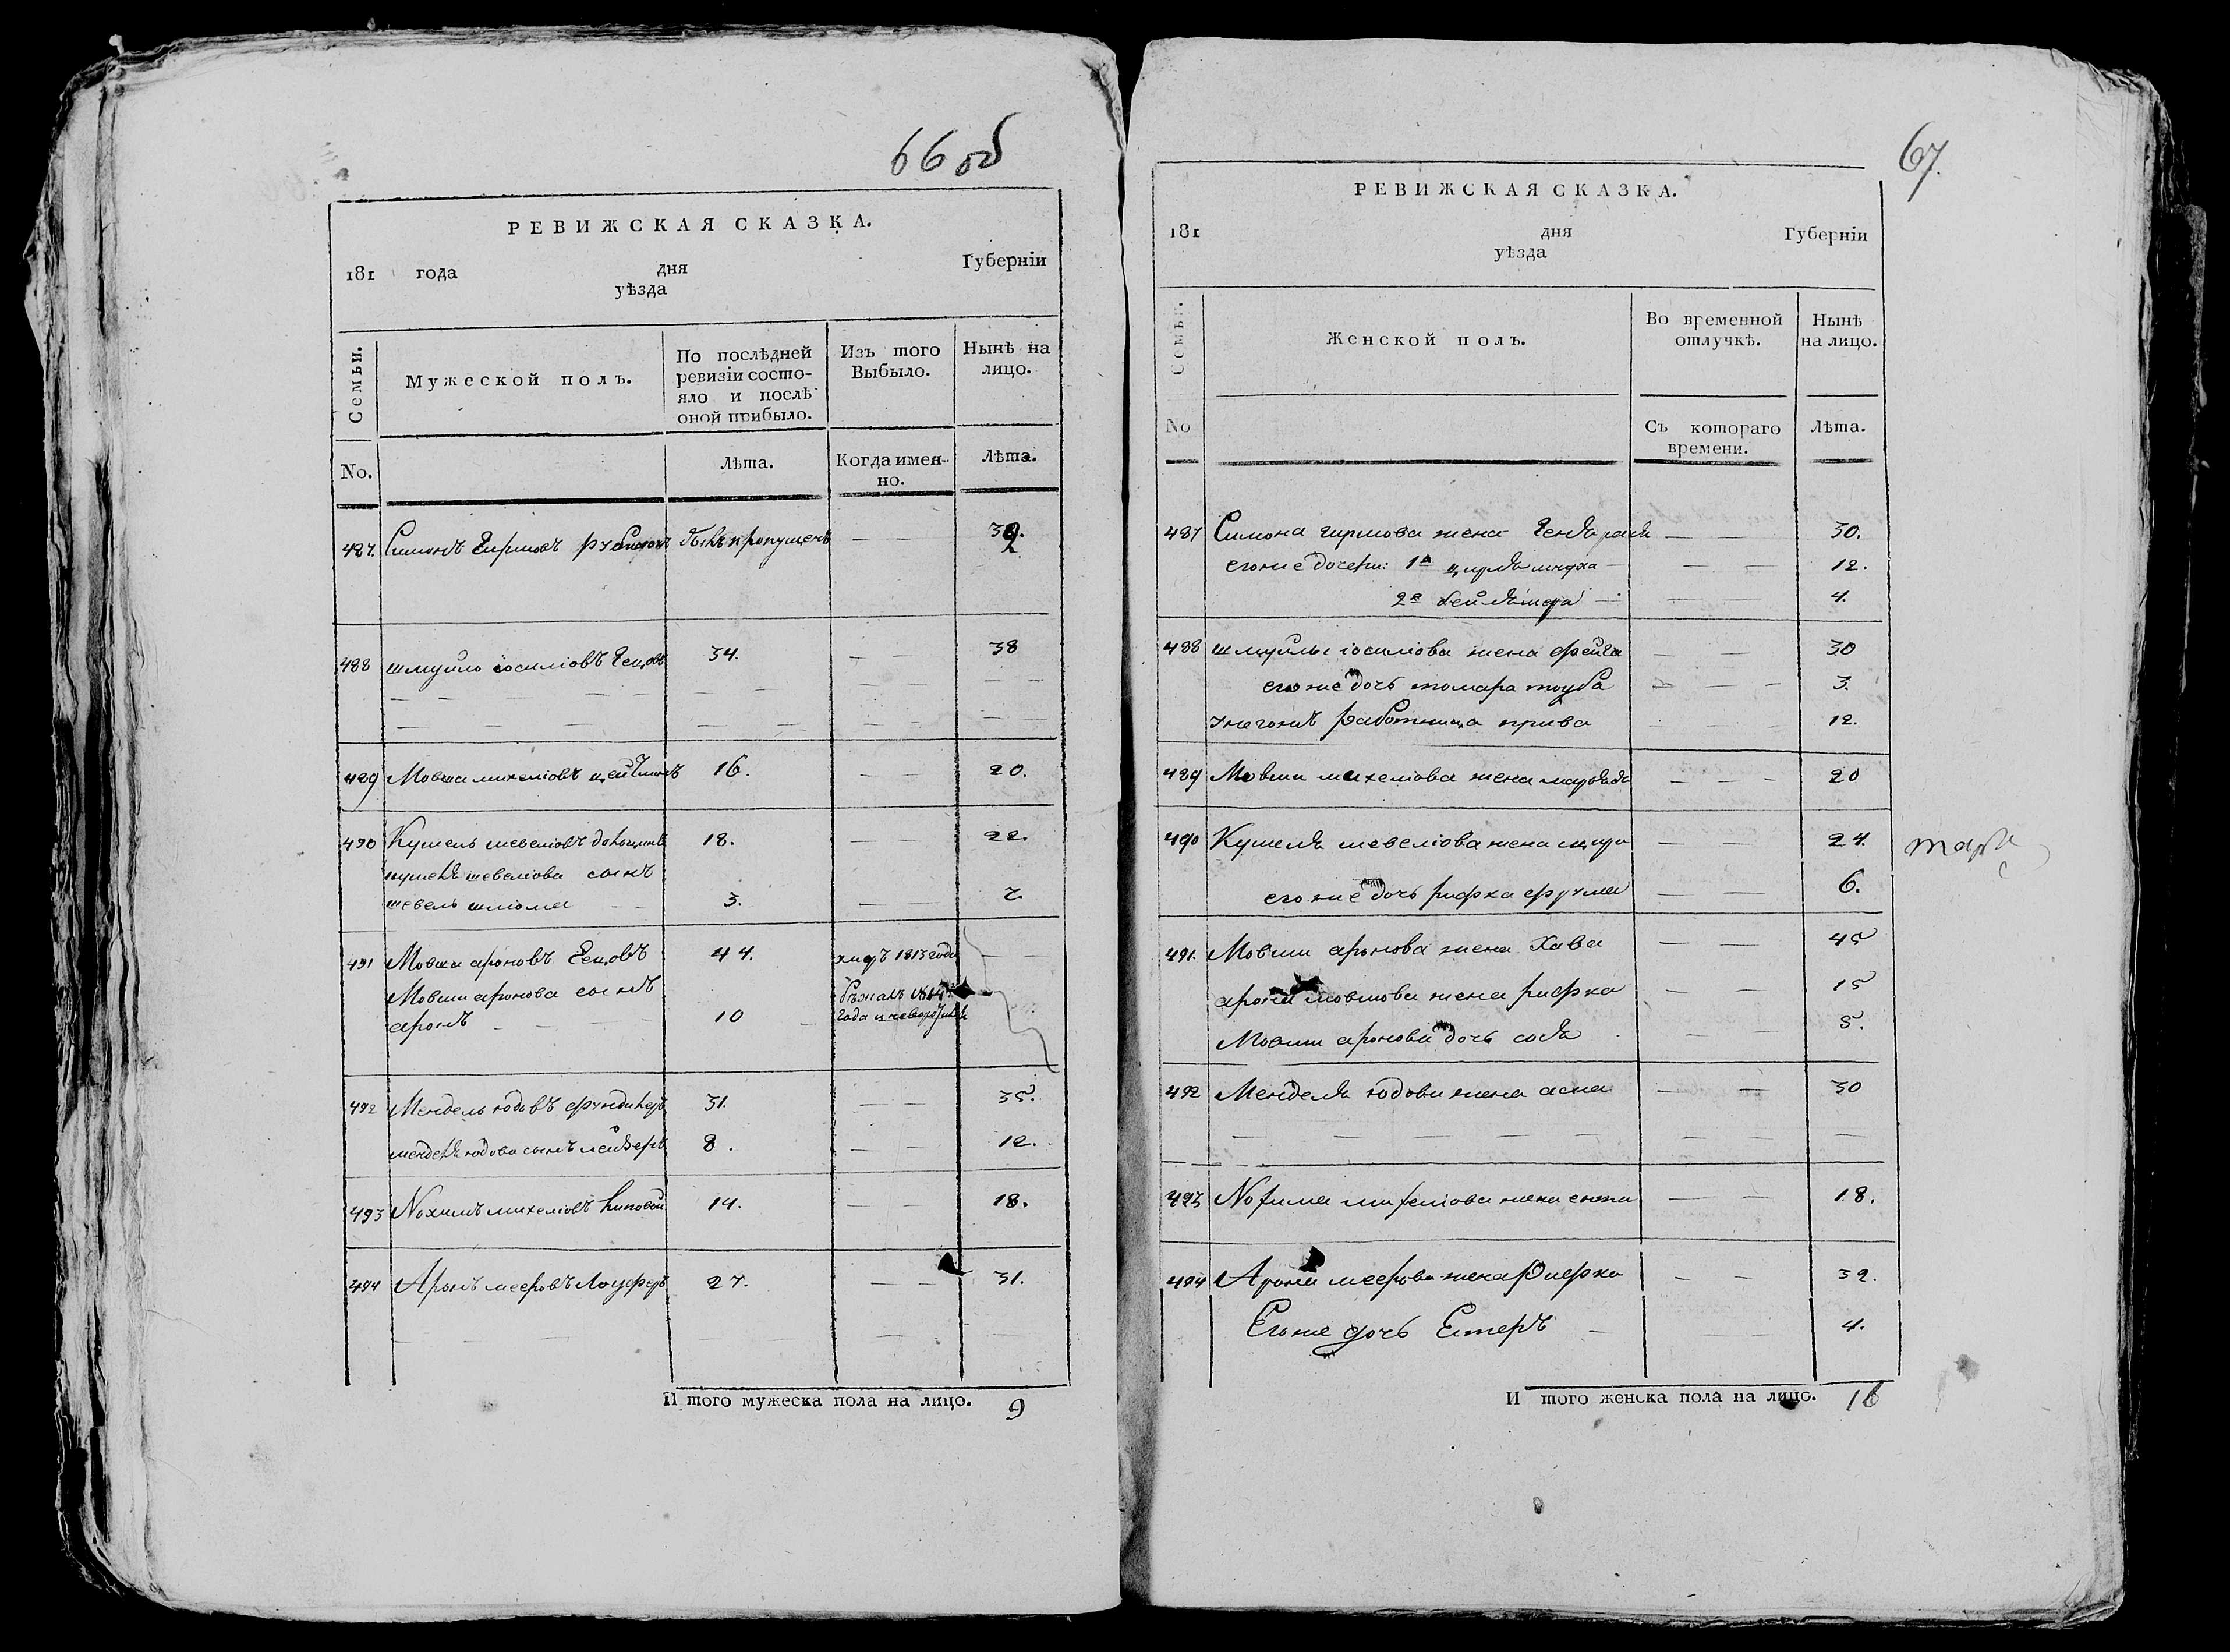 66 об
РЕВИЖСКАЯ СКАЗКА.
181 года дня Губернїи
уѣзда
Семьи.
Мужеской полъ.
По послѣдней ревизїи состо-
яло и послѣ
оной прибыло.
Изъ того
Выбыло.
Нынѣ на
лицо.
No.
Лѣта.
Когда имен-
но.
Лѣта.
487. Симонъ Гиршовъ былъ пропущенъ — — 32.
488 шмуйло іосиліовъ Гецовъ 34. — — 38
489 Мовша михеліовъ 16. — — 20.
490 Кушель шевеліовъ 18. — — 22.
шевеліова сынъ
шевель шліома — — 3. — 7.
491 Мовша ароновъ Гецовъ 44. умръ 1813 года — —
Мовши аронова сынъ бѣжалъ 1814
аронъ — — — 10 года
492 Мендель юдовъ 31. — — 35.
менделя юдова сынъ лейзеръ 8. — — 12.
493 Нохимъ михеліовъ 14. — — 18.
494 Аронъ мееровъ Лоуферъ 27. — — 31.
И того мужеска пола на лицо. 9
67.
РЕВИЖСКАЯ СКАЗКА.
181 дня Губернїи
уѣзда
Семьи.
Женской полъ.
Во временной
отлучкѣ.
Нынѣ
на лицо.
No
Съ котораго
времени.
Лѣта.
487 Симона гиршова жена — — 30.
егоже дочери: 1я — — 12.
2я — — 4.
488 шмуйлы іосиліова жена фейга — — 30
егоже дочь томара тоуба — — — 3.
унегожъ работница 12.
489 Мовши михеліова жена — — — 20
490 Кушеля шевеліова жена — — 24.
егоже дочь рифка фрума — — 6.
491. Мовши аронова жена Хава — — 45
арона мовшова жена рифка — — 15
Мовши аронова дочь сося — — 5.
492 Менделя юдова жена асна — — 30
493 Нохима михеліова жена — — 18.
494 Арона меерова жена Рифка — — 32.
Егоже дочь Естеръ — — 4.
И того женска пола на лицо. 16